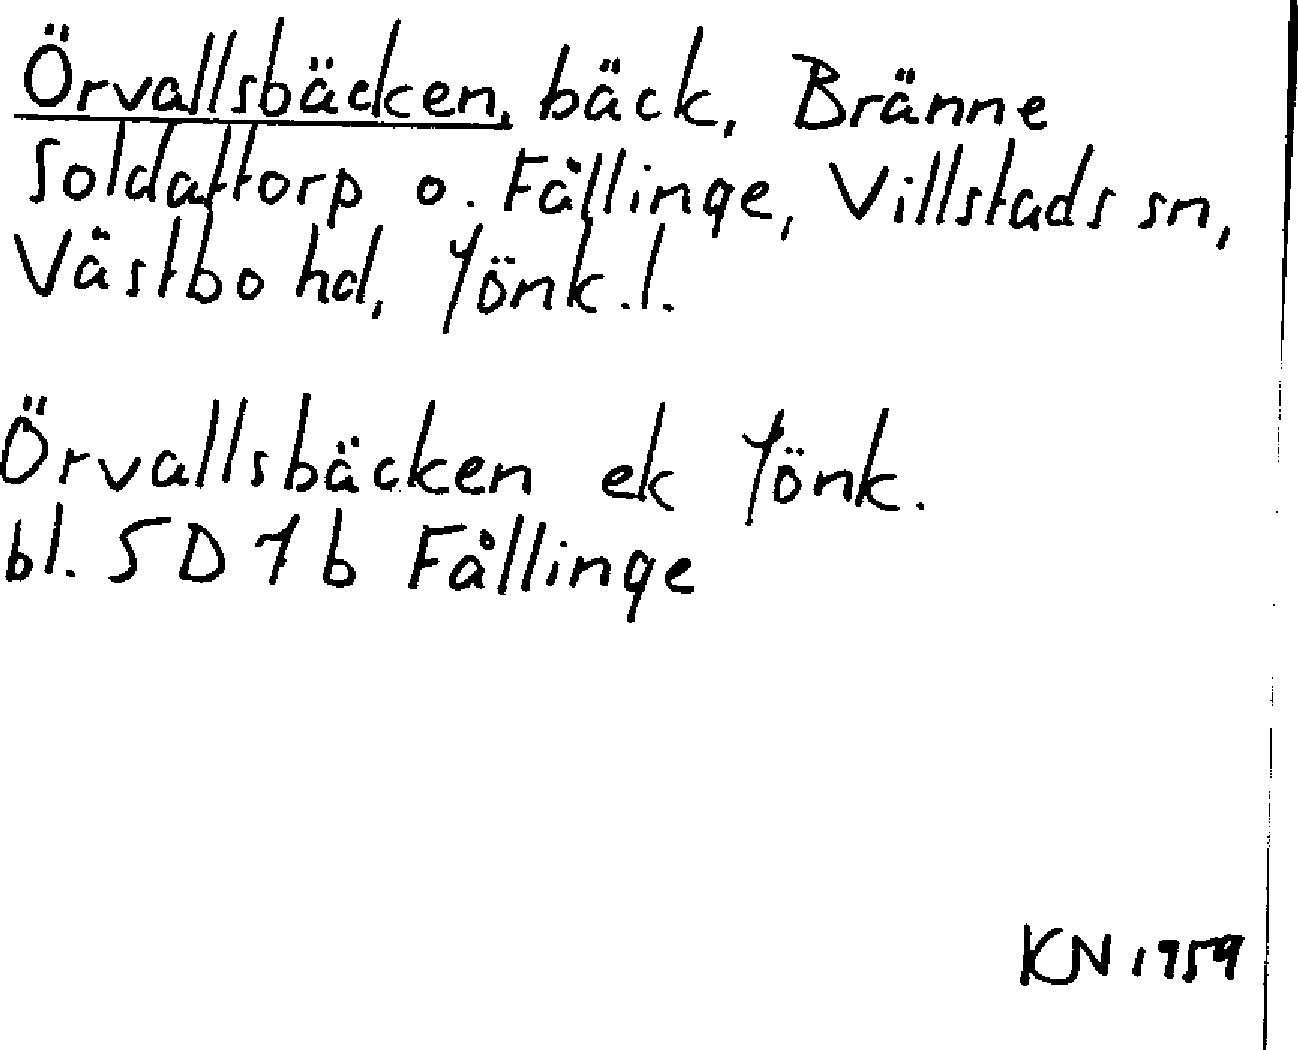 Örvallsbäcken, bäck, Bränne
Soldattorp o. Fållinge, Villstads sn,
Västbo hd, Jönk.l.
Örvallsbäcken ek Jönk.
bl. 5D7b Fållinge
KN 1959